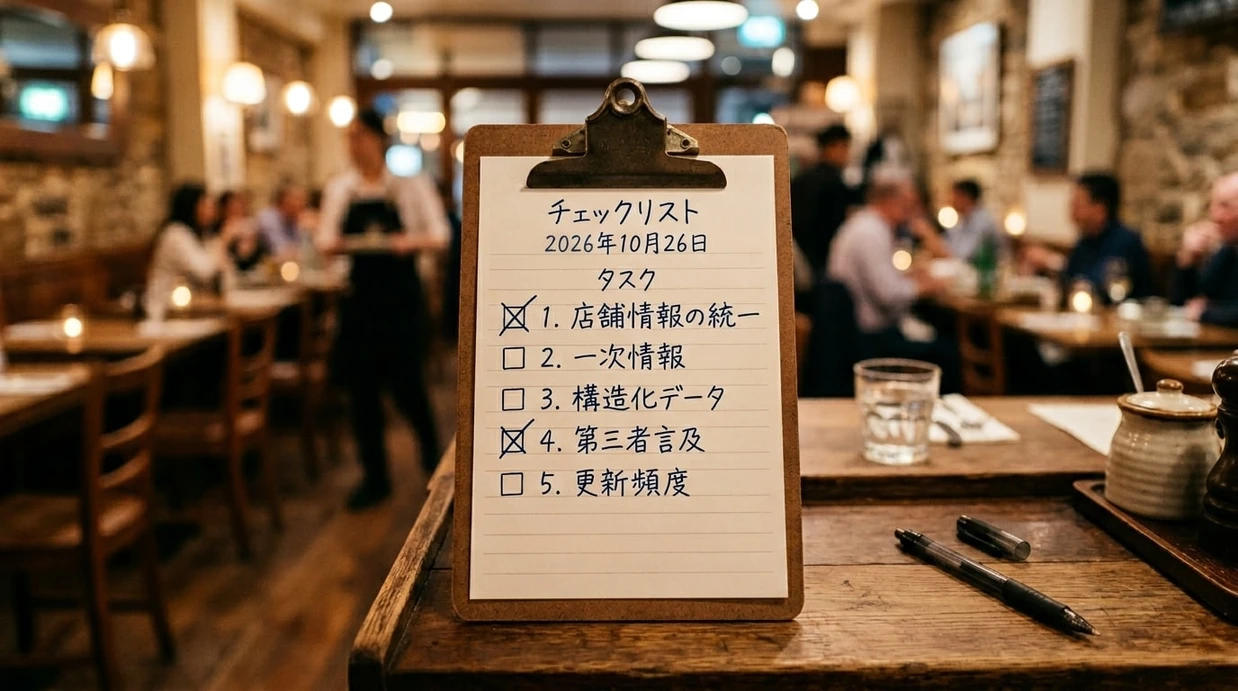 チェックリスト
2026年10月26日
タスク
☒ 1. 店舗情報の統一
☐ 2. 一次情報
☐ 3. 構造化データ
☒ 4. 第三者言及
☐ 5. 更新頻度